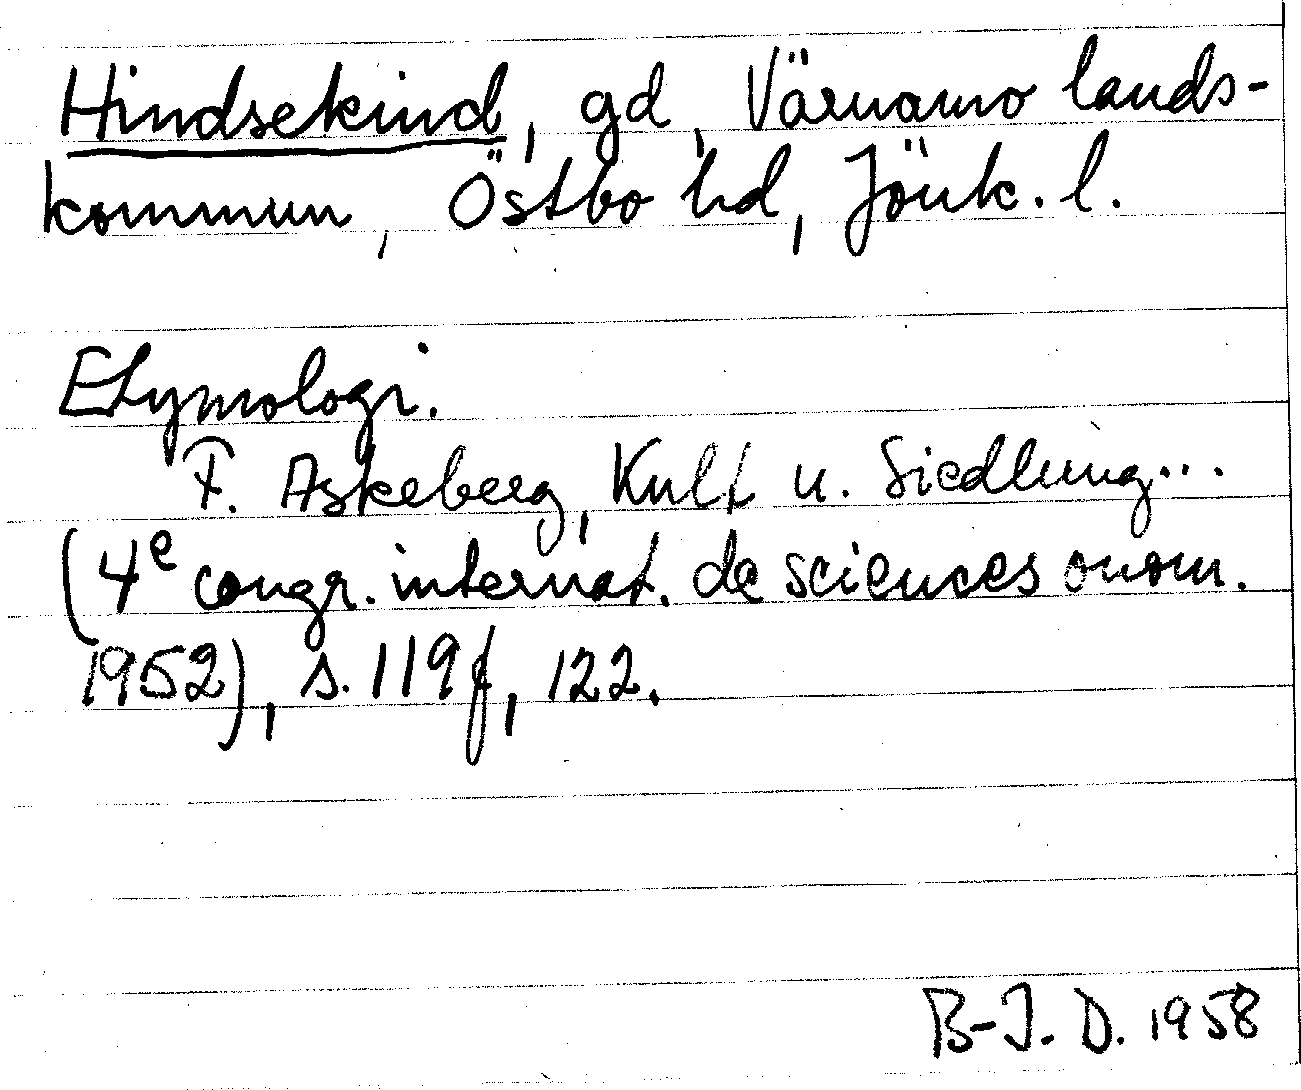 Hindsekind, gd, Värnamo lands-
kommun, Östbo hd, Jönk. l.
Etymologi.
F. Askeberg, Kult u. Siedlung...
(4e congr. internat. de sciences onom.
1952), s. 119f, 122.
B-J. D. 1958